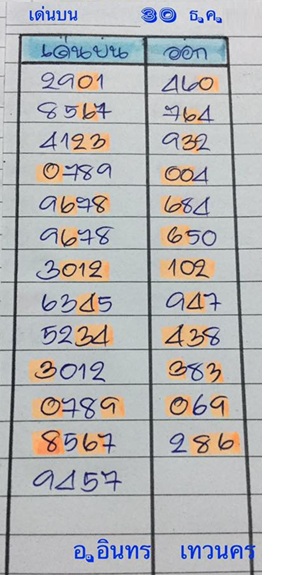 เด่นบน 30 ธ.ค.
เด่นบน ออก
2901 460
8567 764
4123 932
0789 004
9678 684
9678 650
3012 102
6345 947
5234 438
3012 383
0789 069
8567 286
9457
อ.อินทร เทวนคร